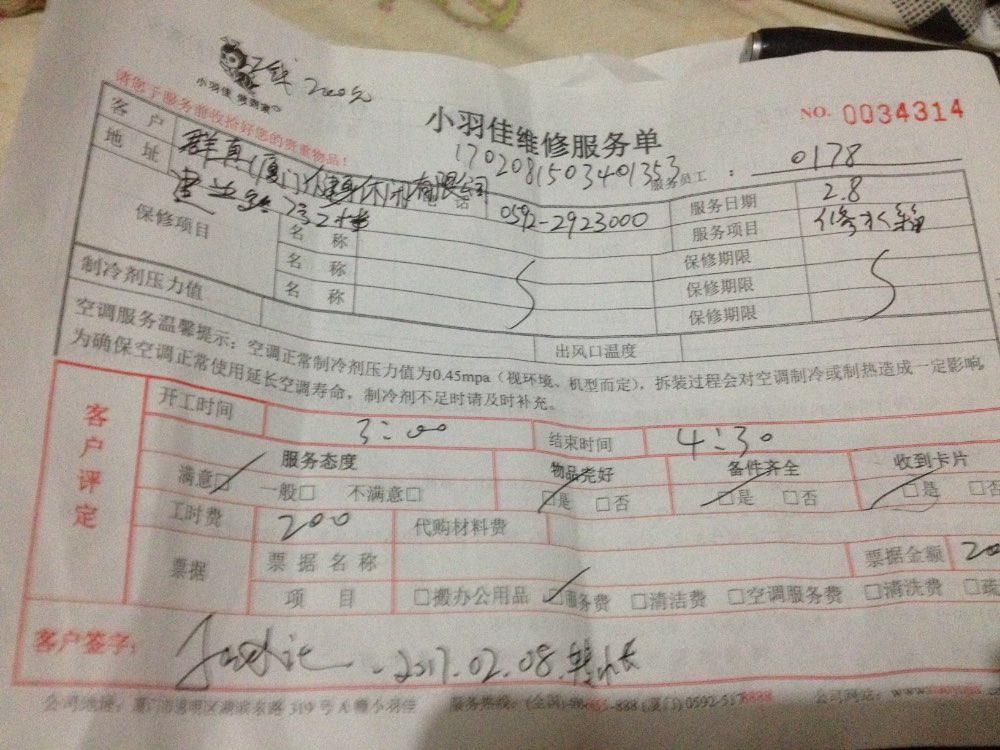 小羽佳 修到家
200元
请您于服务前收拾好您的贵重物品！
小羽佳维修服务单
NO. 0034314
1702081503401353
服务员工： 0178
客户 群真(厦门)健身休闲有限公司
地址
电话 0592-2923000
服务日期 2.8
服务项目 修水箱
保修项目
名称 保修期限
名称 保修期限
名称 保修期限
制冷剂压力值
出风口温度
空调服务温馨提示：空调正常制冷剂压力值为0.45mpa（视环境、机型而定），拆装过程会对空调制冷或制热造成一定影响，
为确保空调正常使用延长空调寿命，制冷剂不足时请及时补充。
客户评定
开工时间 3:00 结束时间 4:30
服务态度 物品完好 备件齐全 收到卡片
满意□ 一般□ 不满意□ □是 □否 □是 □否 □是 □否
工时费 200 代购材料费
票据 票据名称 票据金额
项目 □搬办公用品 □服务费 □清洁费 □空调服务费 □清洗费
客户签字： 2017.02.08.
公司地址：厦门市思明区湖滨东路319号A幢小羽佳 服务热线：